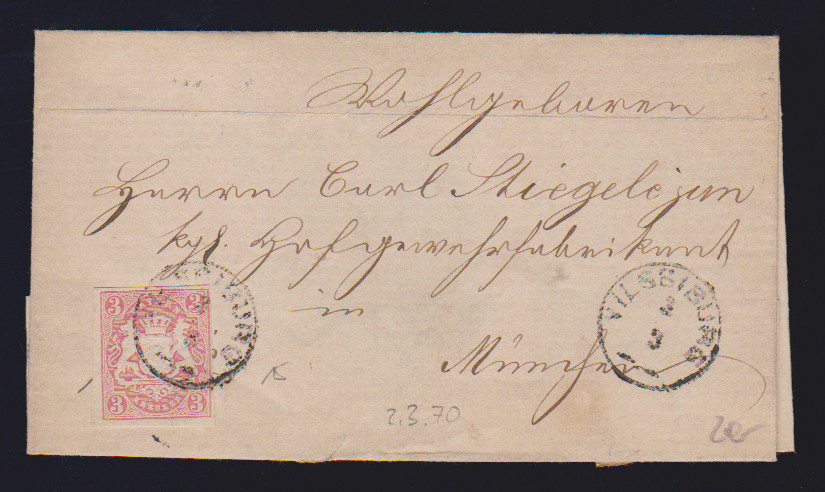 Wohlgeboren
Herrn Carl Stiegele jun
kgl. Hofgewehrfabrikant
in
München
3 3
3 3
VILSBIBURG
2
3
VILSBIBURG
2.3.70